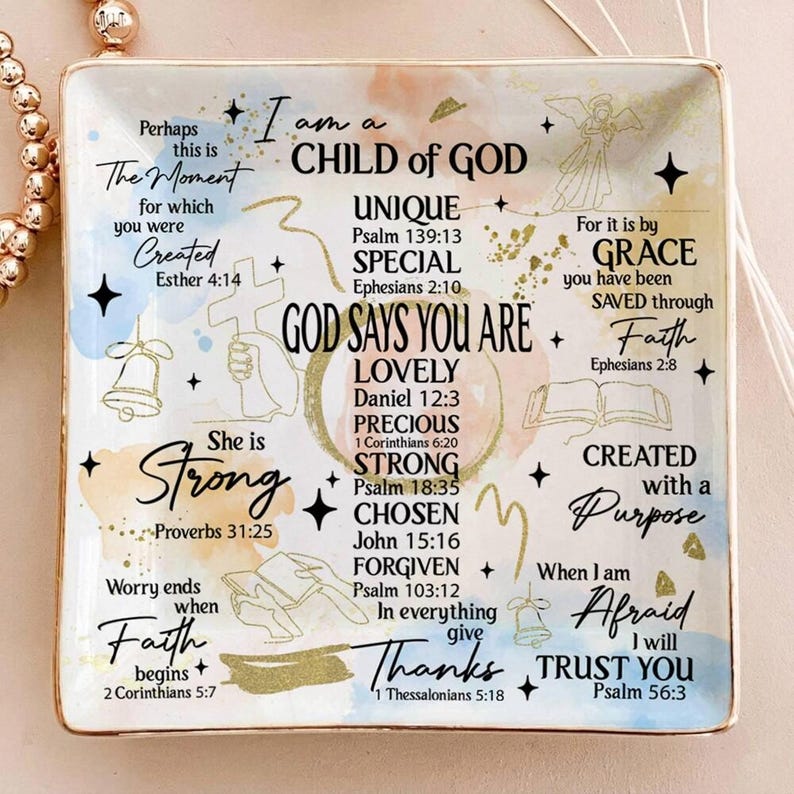 I am a
CHILD of GOD
Perhaps
this is
The Moment
for which
you were
Created
Esther 4:14
UNIQUE
Psalm 139:13
SPECIAL
Ephesians 2:10
GOD SAYS YOU ARE
LOVELY
Daniel 12:3
PRECIOUS
1 Corinthians 6:20
STRONG
Psalm 18:35
CHOSEN
John 15:16
FORGIVEN
Psalm 103:12
For it is by
GRACE
you have been
SAVED through
Faith
Ephesians 2:8
She is
Strong
Proverbs 31:25
CREATED
with a
Purpose
Worry ends
when
Faith
begins
2 Corinthians 5:7
In everything
give
Thanks
1 Thessalonians 5:18
When I am
Afraid
I will
TRUST YOU
Psalm 56:3